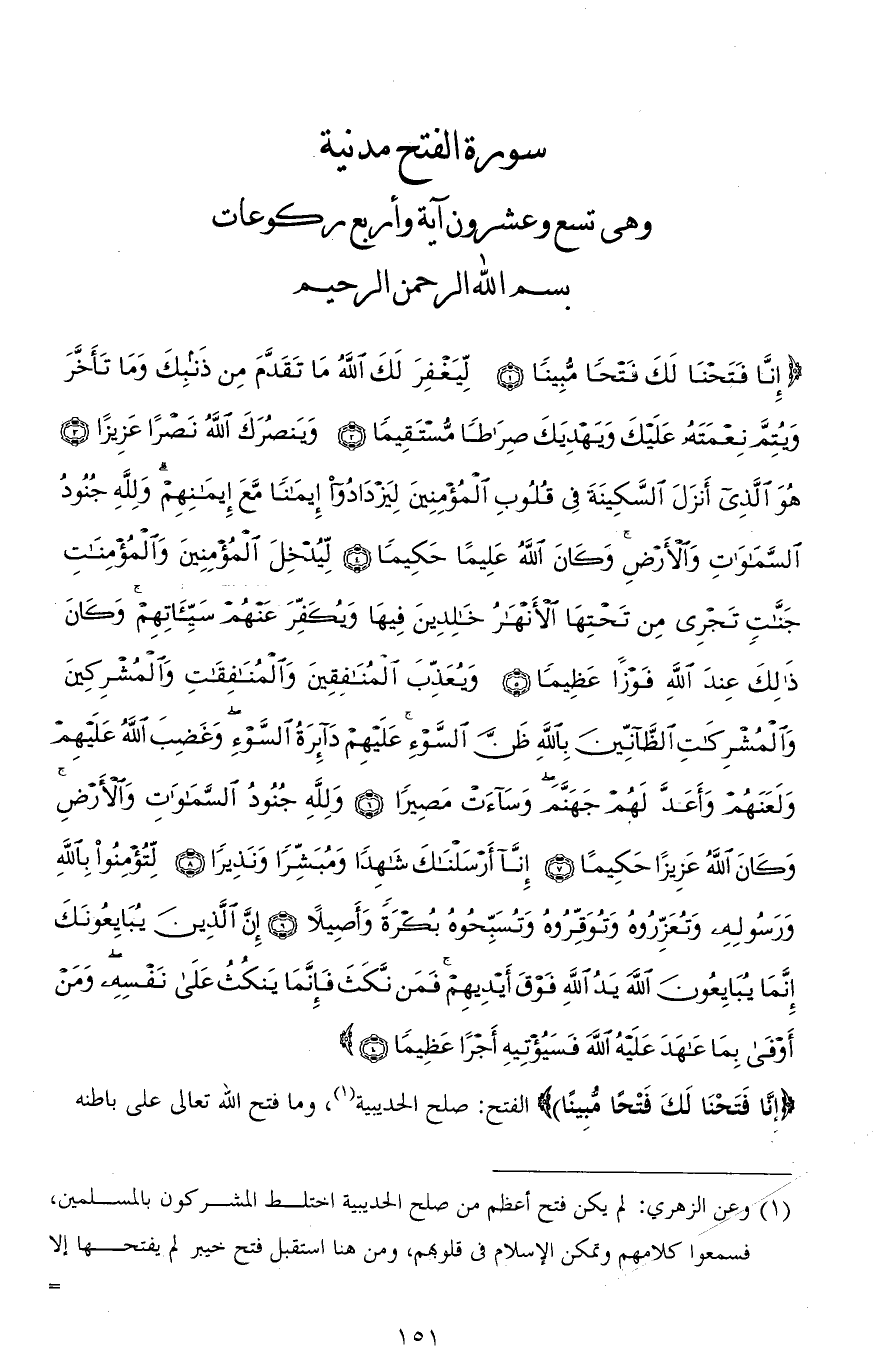 سورة الفتح مدنية
وهى تسع وعشرون آية وأربع ركوعات
بسم الله الرحمن الرحيم
﴿إِنَّا فَتَحْنَا لَكَ فَتْحًا مُّبِينًا ١ لِّيَغْفِرَ لَكَ ٱللَّهُ مَا تَقَدَّمَ مِن ذَنۢبِكَ وَمَا تَأَخَّرَ
وَيُتِمَّ نِعْمَتَهُۥ عَلَيْكَ وَيَهْدِيَكَ صِرَٰطًا مُّسْتَقِيمًا ٢ وَيَنصُرَكَ ٱللَّهُ نَصْرًا عَزِيزًا ٣
هُوَ ٱلَّذِىٓ أَنزَلَ ٱلسَّكِينَةَ فِى قُلُوبِ ٱلْمُؤْمِنِينَ لِيَزْدَادُوٓا۟ إِيمَٰنًا مَّعَ إِيمَٰنِهِمْ ۗ وَلِلَّهِ جُنُودُ
ٱلسَّمَٰوَٰتِ وَٱلْأَرْضِ ۚ وَكَانَ ٱللَّهُ عَلِيمًا حَكِيمًا ٤ لِّيُدْخِلَ ٱلْمُؤْمِنِينَ وَٱلْمُؤْمِنَٰتِ
جَنَّٰتٍ تَجْرِى مِن تَحْتِهَا ٱلْأَنْهَٰرُ خَٰلِدِينَ فِيهَا وَيُكَفِّرَ عَنْهُمْ سَيِّـَٔاتِهِمْ ۚ وَكَانَ
ذَٰلِكَ عِندَ ٱللَّهِ فَوْزًا عَظِيمًا ٥ وَيُعَذِّبَ ٱلْمُنَٰفِقِينَ وَٱلْمُنَٰفِقَٰتِ وَٱلْمُشْرِكِينَ
وَٱلْمُشْرِكَٰتِ ٱلظَّآنِّينَ بِٱللَّهِ ظَنَّ ٱلسَّوْءِ ۚ عَلَيْهِمْ دَآئِرَةُ ٱلسَّوْءِ ۖ وَغَضِبَ ٱللَّهُ عَلَيْهِمْ
وَلَعَنَهُمْ وَأَعَدَّ لَهُمْ جَهَنَّمَ ۖ وَسَآءَتْ مَصِيرًا ٦ وَلِلَّهِ جُنُودُ ٱلسَّمَٰوَٰتِ وَٱلْأَرْضِ ۚ
وَكَانَ ٱللَّهُ عَزِيزًا حَكِيمًا ٧ إِنَّآ أَرْسَلْنَٰكَ شَٰهِدًا وَمُبَشِّرًا وَنَذِيرًا ٨ لِّتُؤْمِنُوا۟ بِٱللَّهِ
وَرَسُولِهِۦ وَتُعَزِّرُوهُ وَتُوَقِّرُوهُ وَتُسَبِّحُوهُ بُكْرَةً وَأَصِيلًا ٩ إِنَّ ٱلَّذِينَ يُبَايِعُونَكَ
إِنَّمَا يُبَايِعُونَ ٱللَّهَ يَدُ ٱللَّهِ فَوْقَ أَيْدِيهِمْ ۚ فَمَن نَّكَثَ فَإِنَّمَا يَنكُثُ عَلَىٰ نَفْسِهِۦ ۖ وَمَنْ
أَوْفَىٰ بِمَا عَٰهَدَ عَلَيْهُ ٱللَّهَ فَسَيُؤْتِيهِ أَجْرًا عَظِيمًا ﴾
﴿إِنَّا فَتَحْنَا لَكَ فَتْحًا مُّبِينًا)﴾ الفتح: صلح الحديبية(١)، وما فتح الله تعالى على باطنه
(١) وعن الزهري: لم يكن فتح أعظم من صلح الحديبية اختلط المشركون بالمسلمين،
فسمعوا كلامهم وتمكن الإسلام فى قلوبهم، ومن هنا استقبل فتح خيبر لم يفتحها إلا
=
١٥١